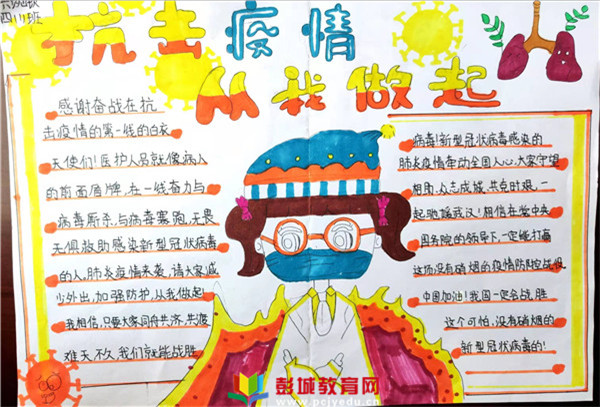 四(1)班
抗击疫情
从我做起
感谢奋战在抗
击疫情的第一线的白衣
天使们!医护人员就像病人
的前面盾牌,在一线奋力与
病毒厮杀,与病毒赛跑,无畏
无惧救助感染新型冠状病毒
的人,肺炎疫情来袭,请大家减
少外出,加强防护,从我做起
我相信,只要大家同舟共济,共渡
难关,不久,我们就能战胜
病毒!新型冠状病毒感染的
肺炎疫情牵动全国人心,大家守望
相助,众志成城,共克时艰,一
起驰援武汉!相信在党中央
国务院的领导下,一定能打赢
这场没有硝烟的疫情防控战役
中国加油!我国一定会战胜
这个可怕,没有硝烟的
新型冠状病毒的!
彭城教育网
www.pcjyedu.cn